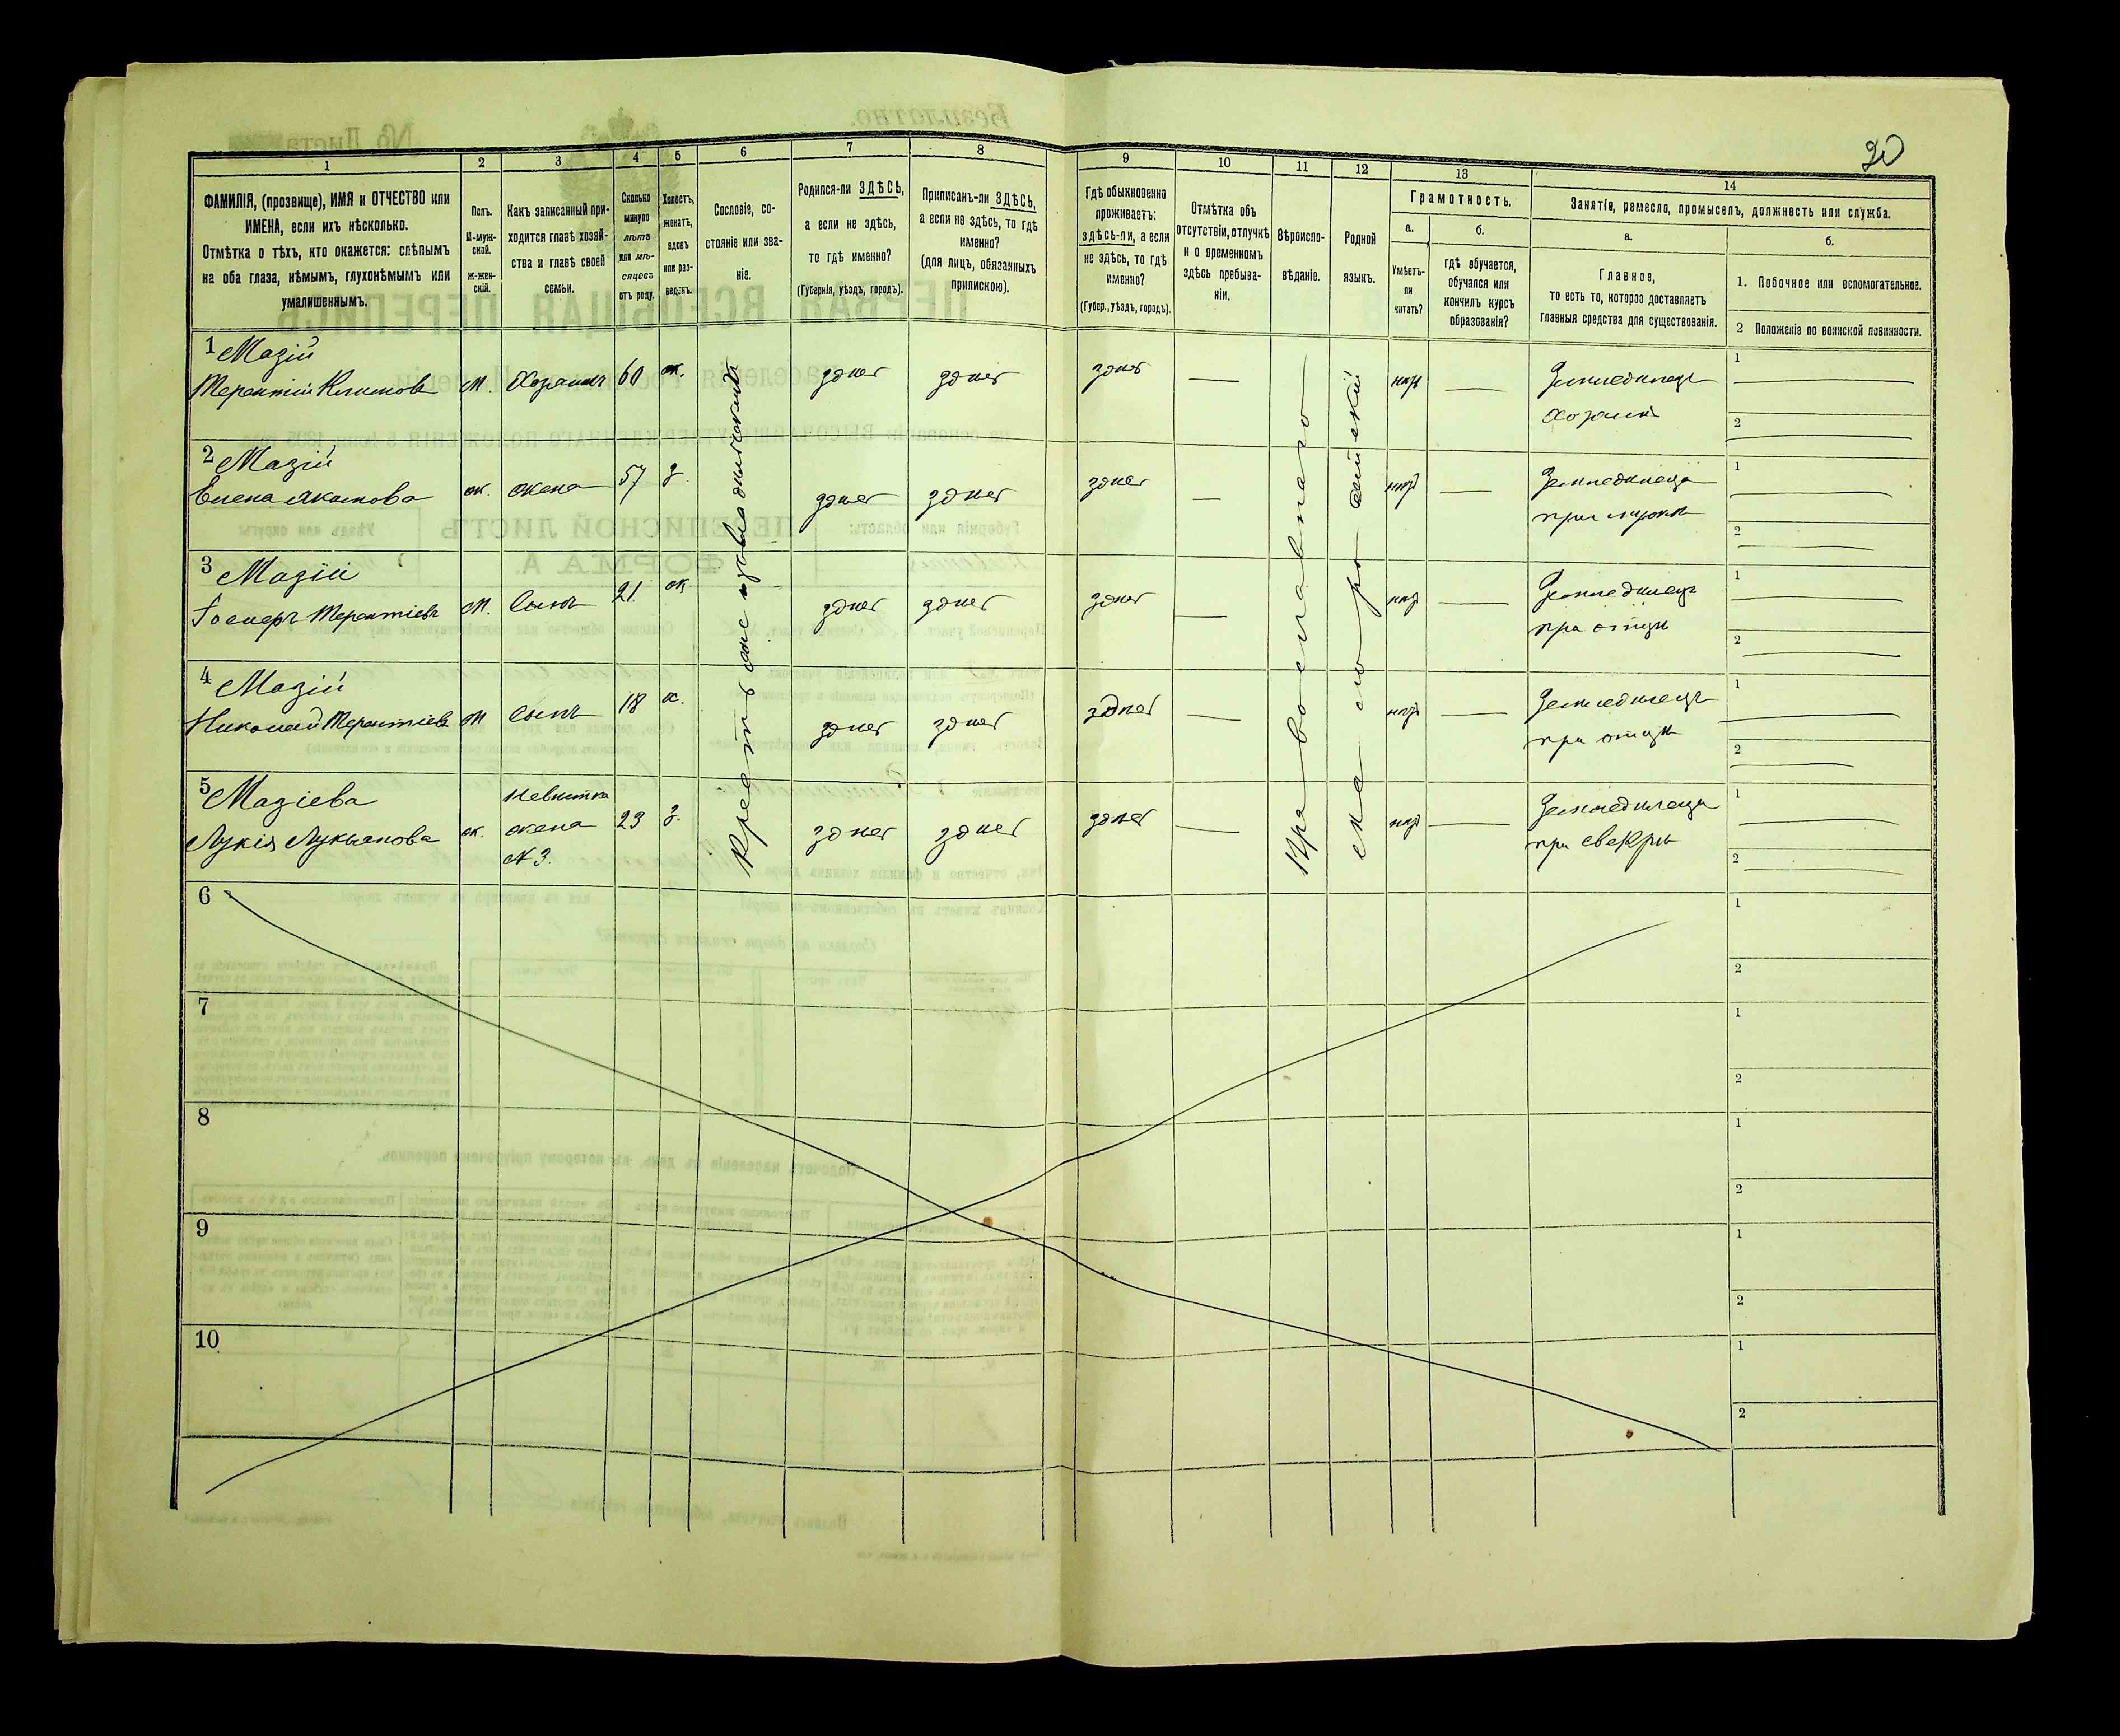 20
1 2 3 4 5 6 7 8 9 10 11 12 13 14
ФАМИЛІЯ, (прозвище), ИМЯ и ОТЧЕСТВО или
ИМЕНА, если ихъ нѣсколько.
Отмѣтка о тѣхъ, кто окажется: слѣпымъ
на оба глаза, нѣмымъ, глухонѣмымъ или
умалишеннымъ.
Полъ.
М-муж-
ской.
Ж-жен-
скій.
Какъ записанный при-
ходится главѣ хозяй-
ства и главѣ своей
семьи.
Сколько
минуло
лѣтъ
или мѣ-
сяцевъ
отъ роду.
Холостъ,
женатъ,
вдовъ
или раз-
веденъ.
Сословіе, со-
стояніе или зва-
ніе.
Родился-ли ЗДѢСЬ,
а если не здѣсь,
то гдѣ именно?
(Губернія, уѣздъ, городъ).
Приписанъ-ли ЗДѢСЬ,
а если не здѣсь, то гдѣ
именно?
(для лицъ, обязанныхъ
припискою).
Гдѣ обыкновенно
проживаетъ:
здѣсь-ли, а если
не здѣсь, то гдѣ
именно?
(Губер., уѣздъ, городъ).
Отмѣтка объ
отсутствіи, отлучкѣ
и о временномъ
здѣсь пребыва-
ніи.
Вѣроиспо-
вѣданіе.
Родной
языкъ.
Грамотность.
а.
б.
Умѣетъ-
ли
читать?
гдѣ обучается,
обучался или
кончилъ курсъ
образованія?
Занятія, ремесло, промыселъ, должность или служба.
а.
б.
Главное,
то есть то, которое доставляетъ
главныя средства для существованія.
1. Побочное или вспомогательное.
2 Положеніе по воинской повинности.
1 Мазій
Терентій Климовъ м. Хозяинъ 60 ж. здѣсь здѣсь здѣсь — нѣтъ — Земледѣлецъ
хозяинъ
1
2
2 Мазій
Елена Якимова ж. жена 57 з. здѣсь здѣсь здѣсь — нѣтъ — Земледѣлица
при мужѣ
1
2
3 Мазій
Терентіевъ м. Сынъ 21 ж. здѣсь здѣсь здѣсь — нѣтъ — Земледѣлецъ
при отцѣ
1
2
4 Мазій
Николай Терентіевъ м Сынъ 18 х. здѣсь здѣсь здѣсь — нѣтъ — Земледѣлецъ
при отцѣ
1
2
5 Мазіева
Лукія Лукьянова ж. Невистка
жена
№ 3. 23 з. здѣсь здѣсь здѣсь — нѣтъ — Земледѣлица
при свекрѣ
1
2
Православнаго
6
1
2
7
1
2
8
1
2
9
1
2
10
1
2